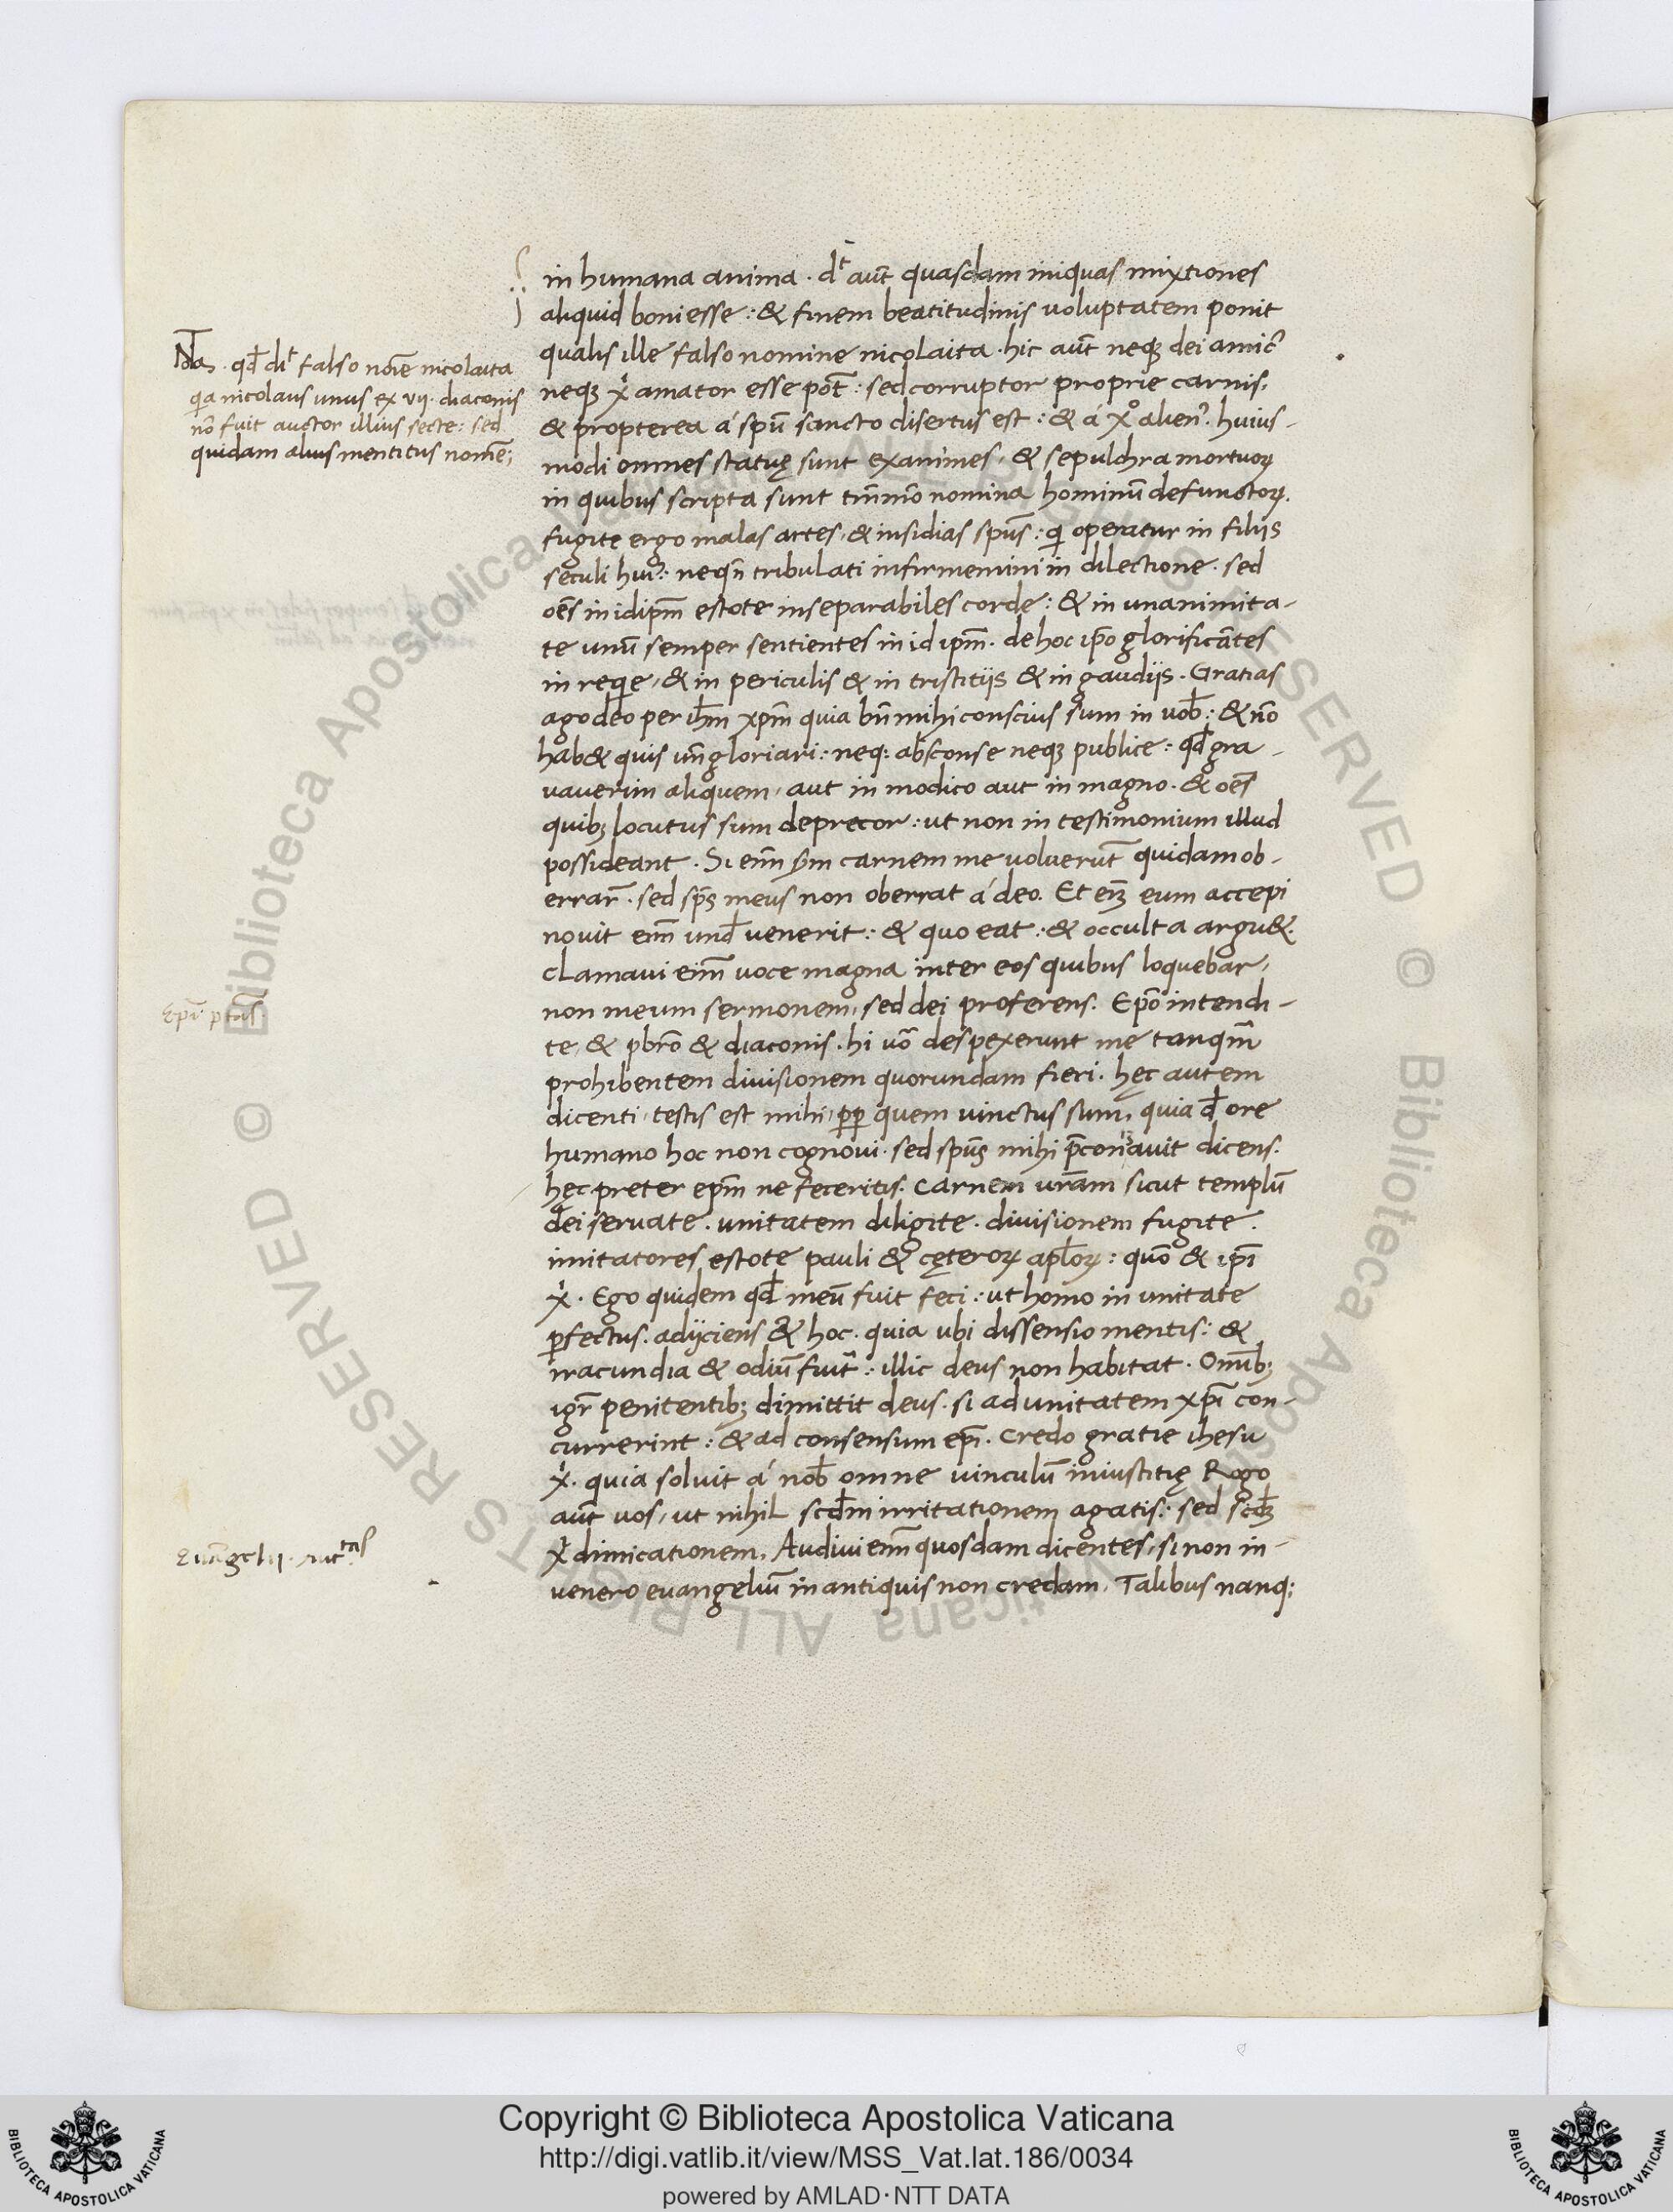 in humana anima . dt̄ aut̄ quasdam iniquas mixtiones
aliquid boni esse : & finem beatitudinis voluptatem ponit
qualis ille falso nomine nicolaita . hic aut̄ neqꝫ dei amicꝰ
neqꝫ xⁱ amator esse pōt : sed corruptor proprie carnis .
& propterea á spū sancto disertus est : & á x° alienꝰ . huius-
modi omnes statuę sunt exanimes , & sepulchra mortuoꝝ
in quibus scripta sunt tm̄mō nomina hominū defunctoꝝ .
fugite ergo malas artes , & insidias spūs : qi operatur in filijs
seculi huiꝰ : neqn̄ tribulati infirmemini in dilectione . sed
oēs in idipm̄ estote inseparabiles corde : & in unanimita-
te unū semper sentientes in id ipm̄ . de hoc ip̄o glorificātes
in reqie , & in periculis & in tristitijs & in gaudijs . Gratias
ago deo per ih̄m xpm̄ quia bn̄ mihi conscius sum in vob̄ : & nō
hab& quis vn̄ gloriari : neq: absconse neqꝫ publice : qd̄ gra-
vaverim aliquem , aut in modico aut in magno . & oēs
quibꝫ locutus sum deprecor : ut non in testimonium illud
possideant . Si enī̄ sm̄ carnem me voluerūt quidam ob-
errar̄ . sed sp̄s meus non oberrat á deo . Et enꝫ eum accepi
novit em̄ und̄ venerit : & quo eat : & occulta argu& .
clamavi eim̄ voce magna inter eos quibus loquebar ,
non meum sermonem , sed dei proferens . Ep̄o intendi-
te , & pbrō & diaconis . hi vō despexerunt me tanqm̄
prohibentem divisionem quorundam fieri . hęc autem
dicenti , testis est mihi , ꝓꝑ quem vinctus sum , quia d̄ ore
humano hoc non cognovi . sed spūs mihi p̄coniꝫavit dicens .
hęc preter epm̄ ne feceritis . carnem vr̄am sicut templū
dei servate . unitatem diligite . divisionem fugite .
imitatores estote pauli & cęteroꝝ apl̄oꝝ : quō & ip̄i
xⁱ . Ego quidem qd̄ meū fuit feci : ut homo in unitate
ꝑfectus . adijciens & hoc . quia ubi dissensio mentis : &
iracundia & odiū fuit̄ : illic deus non habitat . Omībꝫ
igr̄ penitentibꝫ dimittit deus . si ad unitatem xp̄i con-
currerint : & ad consensum ep̄i . Credo gratie ihesu
xⁱ . quia solvit á nob̄ omne vinculū iniustitię Rogo
aut̄ vos , ut nihil scd̄m irritationem agatis : sed scd̄ꝫ
xⁱ dimicationem . Audivi enī̄ quosdam dicentes , si non in-
venero evangeliū in antiquis non credam . Talibus nanq;
Nota . qd̄ dt̄ falso noīe nicolaita
qia nicolaus unus ex vij . diaconis
nō fuit auctor illius secte : sed
quidam alius mentitus nomē ;
Epī . ptas
Evāgelij .
Copyright © Biblioteca Apostolica Vaticana
http://digi.vatlib.it/view/MSS_Vat.lat.186/0034
powered by AMLAD·NTT DATA
BIBLIOTECA APOSTOLICA VATICANA
BIBLIOTECA APOSTOLICA VATICANA
© Biblioteca Apostolica Vaticana ALL RIGHTS RESERVED
© Biblioteca Apostolica Vaticana ALL RIGHTS RESERVED